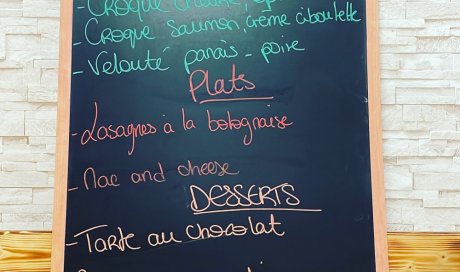 - Croque
- Croque saumon, crème ciboulette
- Velouté panais - poire
Plats
- Lasagnes à la bolognaise
- Mac and cheese
DESSERTS
- Tarte au chocolat